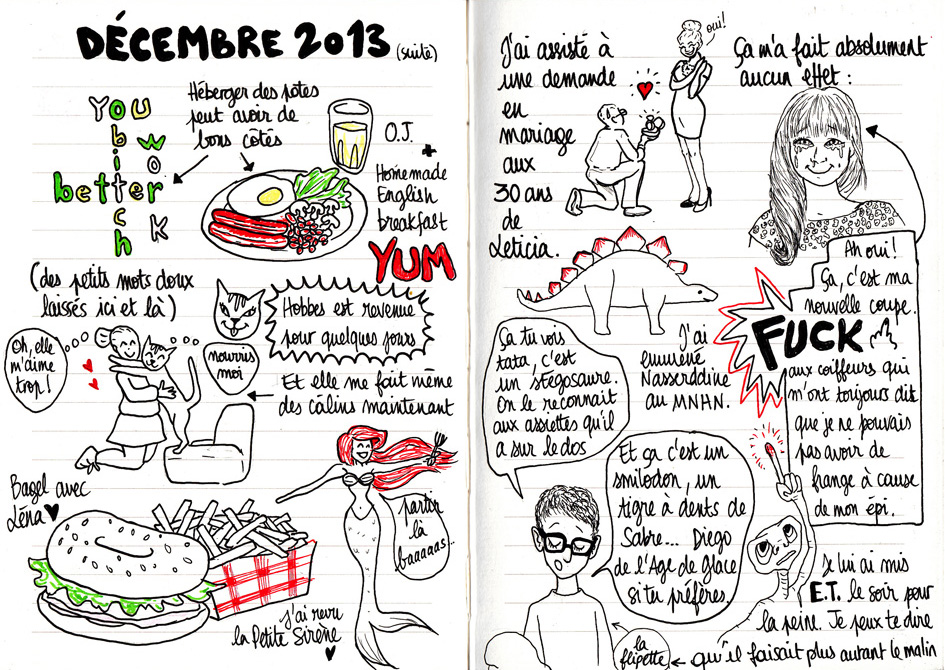 DÉCEMBRE 2013 (suite)
YOU
bitch
better
WORK
Héberger des potes
peut avoir de
bons côtés
O.J.
+
Homemade
English
breakfast
YUM
(des petits mots doux
laissés ici et là)
Hobbes est revenue
pour quelques jours
Oh, elle
m'aime
trop!
nourris
moi
Et elle me fait même
des câlins maintenant
Bagel avec
Léna
partir
là
baaaaas...
j'ai revu
la Petite Sirène
J'ai assisté à
une demande
en
mariage
aux
30 ans
de
Leticia.
oui!
Ça m'a fait absolument
aucun effet :
Ah oui!
Ça, c'est ma
nouvelle coupe.
FUCK
aux coiffeurs qui
m'ont toujours dit
que je ne pouvais
pas avoir de
frange à cause
de mon épi.
Ça tu vois
tata, c'est
un stégosaure.
On le reconnait
aux assiettes qu'il
a sur le dos
J'ai
emmené
Nasserddine
au MNHN.
Et ça c'est un
smilodon, un
tigre à dents de
Sabre... Diego
de l'Age de Glace
si tu préfères.
Je lui ai mis
E.T. le soir pour
la peine. Je peux te dire
qu'il faisait plus autant le malin
la
flipette